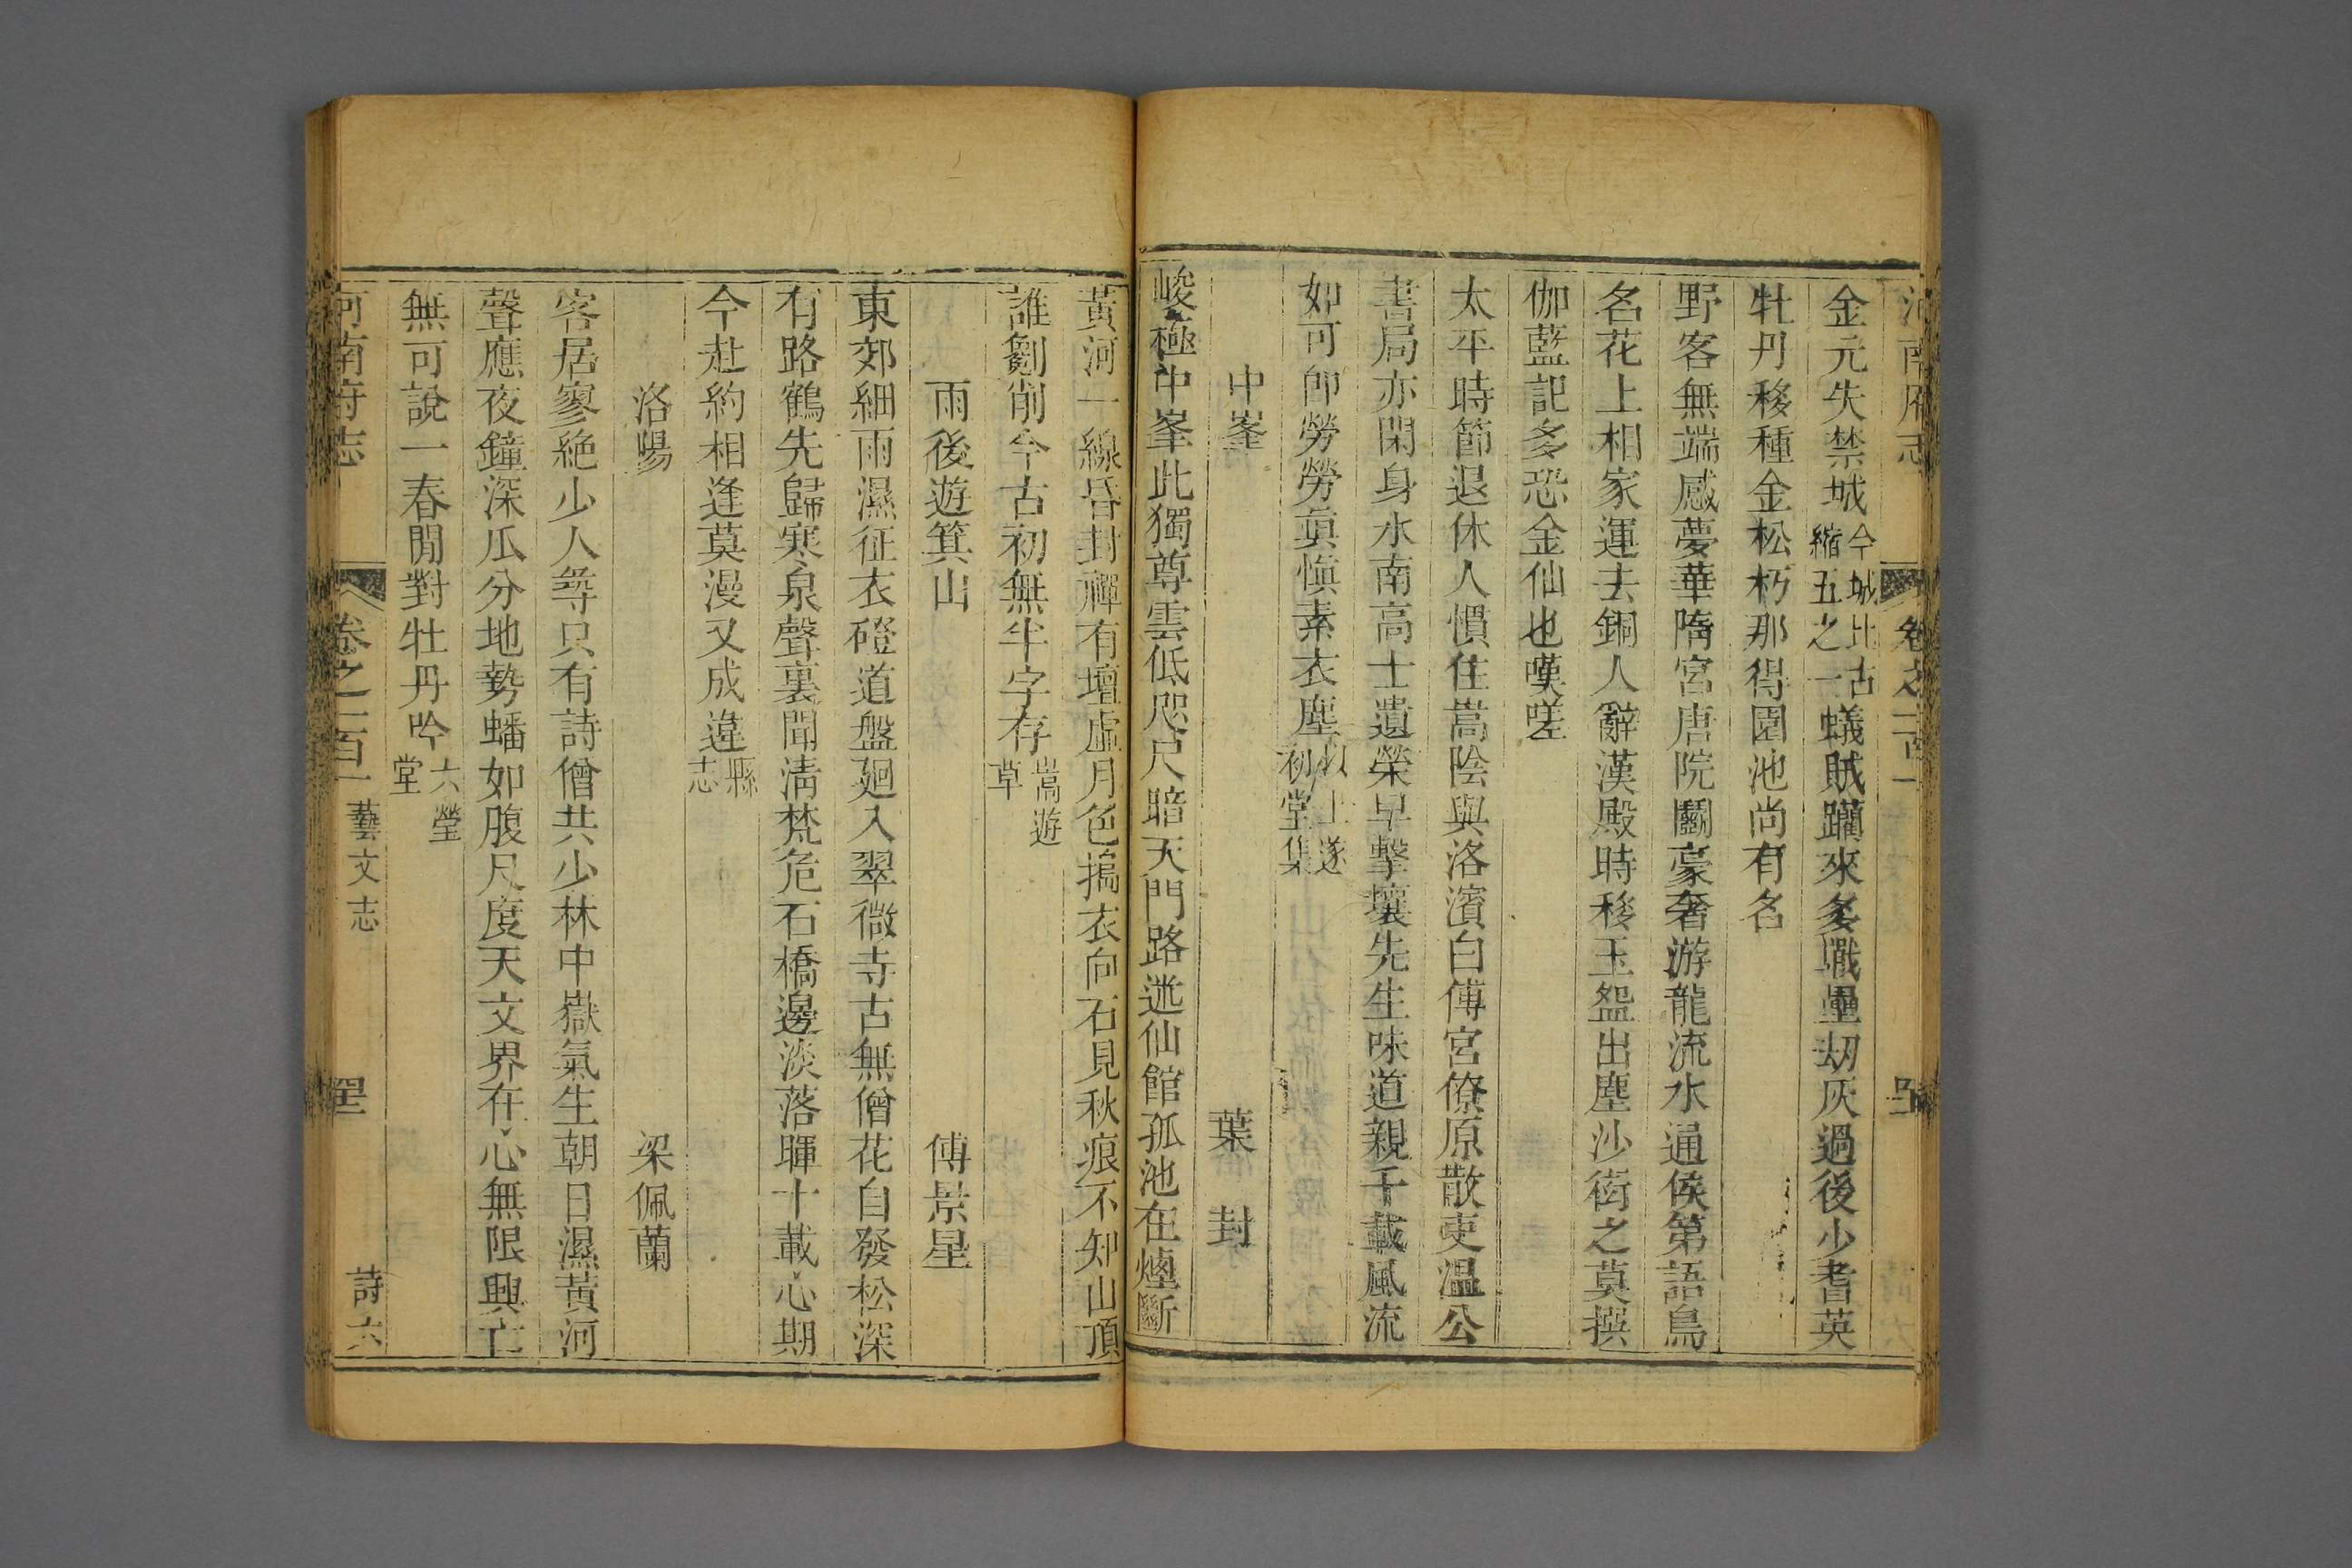 河南府志 卷之一百一
金元失禁城今城比古縮五之一蟻賊躪來多戰壘刼灰過後少耆英
牡丹移種金松朽那得園池尚有名
野客無端感夢華隋宮唐院鬭豪奢游龍流水通侯第語鳥
名花上相家運去銅人辭漢殿時移玉盌出塵沙衒之莫撰
伽藍記多恐金仙也嘆嗟
太平時節退休人慣住嵩陰與洛濱白傅宮僚原散吏溫公
書局亦閑身水南高士遺榮早擊壤先生味道親千載風流
如可卽勞勞眞愼素衣塵以上遂初堂集
中峯 葉封
峻極中峯此獨尊雲低咫尺暗天門路迷仙館孤池在煙斷
黃河一線昏封禪有壇虛月色搗衣向石見秋痕不知山頂
誰劖削今古初無半字存嵩遊草
雨後遊箕山 傅景星
東郊細雨濕征衣磴道盤廻入翠微寺古無僧花自發松深
有路鶴先歸寒泉聲裏聞清梵危石橋邊淡落暉十載心期
今赴約相逢莫漫又成違縣志
洛陽 梁佩蘭
客居寥絶少人尋只有詩僧共少林中嶽氣生朝日濕黃河
聲應夜鐘深瓜分地勢蟠如腹尺度天文界在心無限興亡
無可說一春閒對牡丹吟六瑩堂
河南府志 卷之一百一 藝文志 詩六